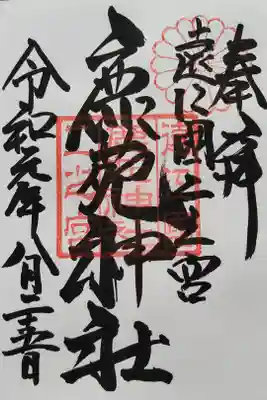 奉拝
遠江國二之宮
鹿苑神社
令和元年八月二十五日